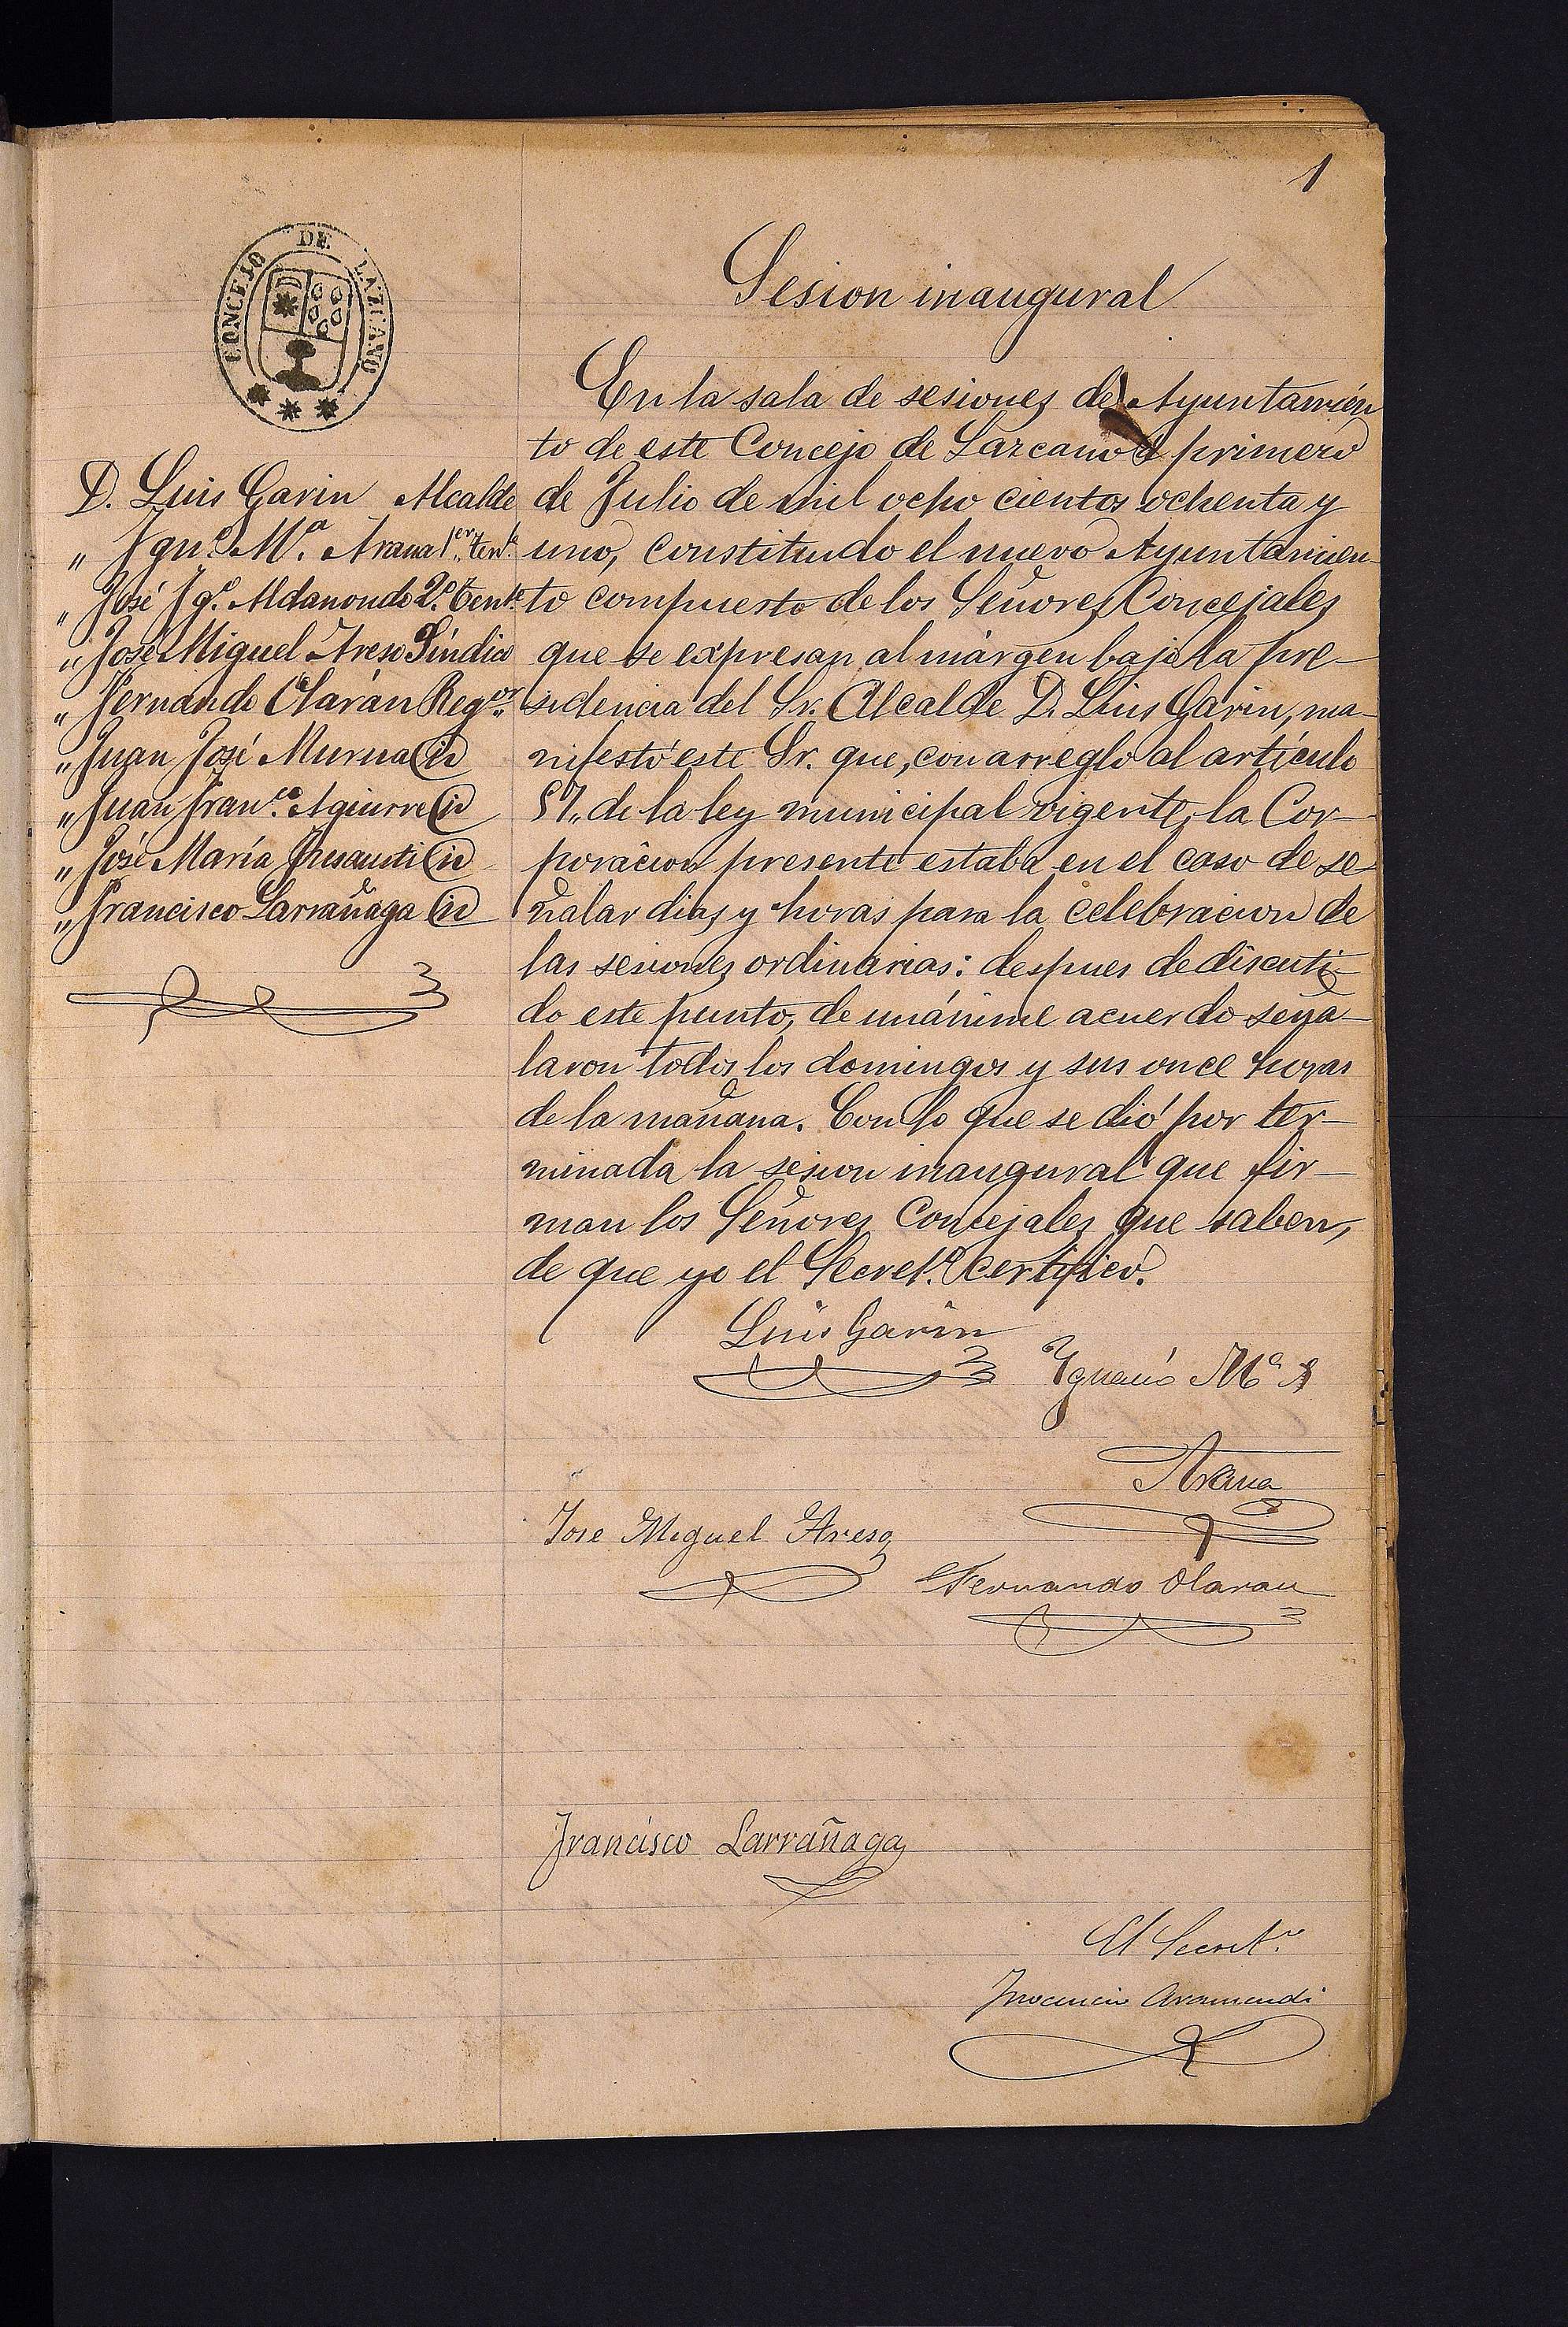 1
CONCEJO DE LAZCANO
Sesion inaugural
D. Luis Garin Alcalde
„ Ign.º M.ª Arana 1.er Ten.te
„ José Ig.º Aldanondo 2.º Tent.e
„ José Miguel Areso Síndico
„ Fernando Olarán Reg.or
„ Juan José Murua id
„ Juan Fran.co Aguirre id
„ José María id
„ Francisco Larrañaga id
En la sala de sesiones del Ayuntamien
to de este Concejo de Lazcano á primero
de Julio de mil ocho cientos ochenta y
uno, constituido el nuevo Ayuntamien-
to compuesto de los Señores Concejales
que se expresan al márgen bajo la pre-
sidencia del Sr. Alcalde D. Luis Garin, ma-
nifestó este Sr. que, con arreglo al artículo
57,, de la ley municipal vigente, la Cor-
poracion presente estaba en el caso de se
ñalar dias y horas para la celebracion de
las sesiones ordinarias: despues de discuti-
do este punto, de unánime acuerdo seña-
laron todos los domingos y sus once horas
de la mañana. Con lo que se dió por ter-
minada la sesion inaugural que fir-
man los Señores Concejales que saben,
de que yo el Secret.º certifico.
Luis Garin
Ignacio M.ª
Arana
Jose Miguel Areso
Fernando Olaran
Francisco Larrañaga
El Secret.º
Inocencio Aramendi